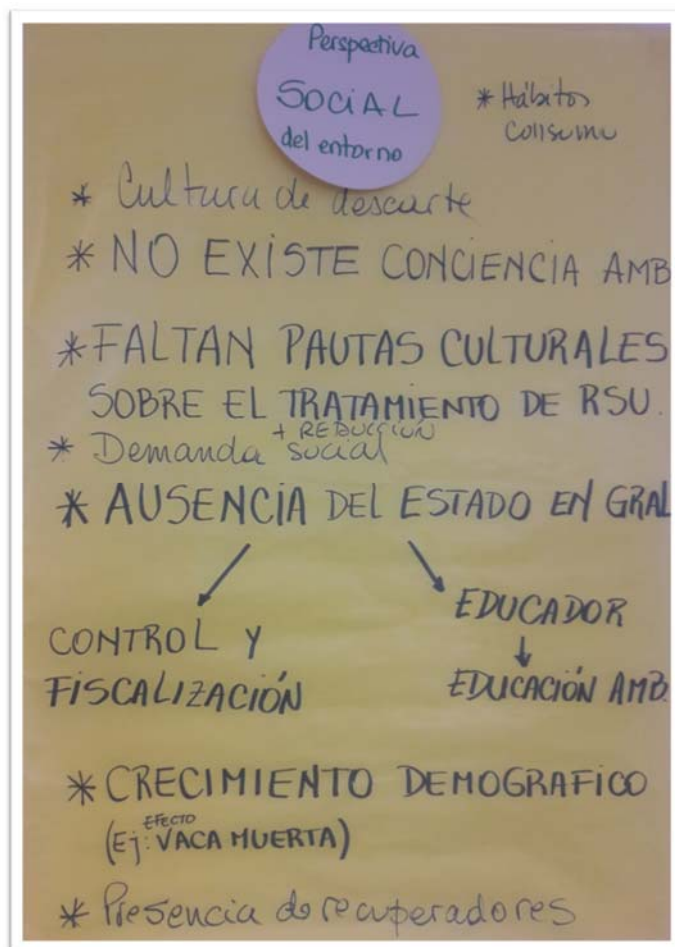 Perspectiva
SOCIAL
del entorno
* Hábitos
consumo
* Cultura de descarte
* NO EXISTE CONCIENCIA AMB
* FALTAN PAUTAS CULTURALES
SOBRE EL TRATAMIENTO DE RSU.
+ REDUCCIÓN
* Demanda social
* AUSENCIA DEL ESTADO EN GRAL
CONTROL Y
FISCALIZACIÓN
EDUCADOR
EDUCACIÓN AMB.
* CRECIMIENTO DEMOGRAFICO
EFECTO
(Ej: VACA MUERTA)
* Presencia de recuperadores